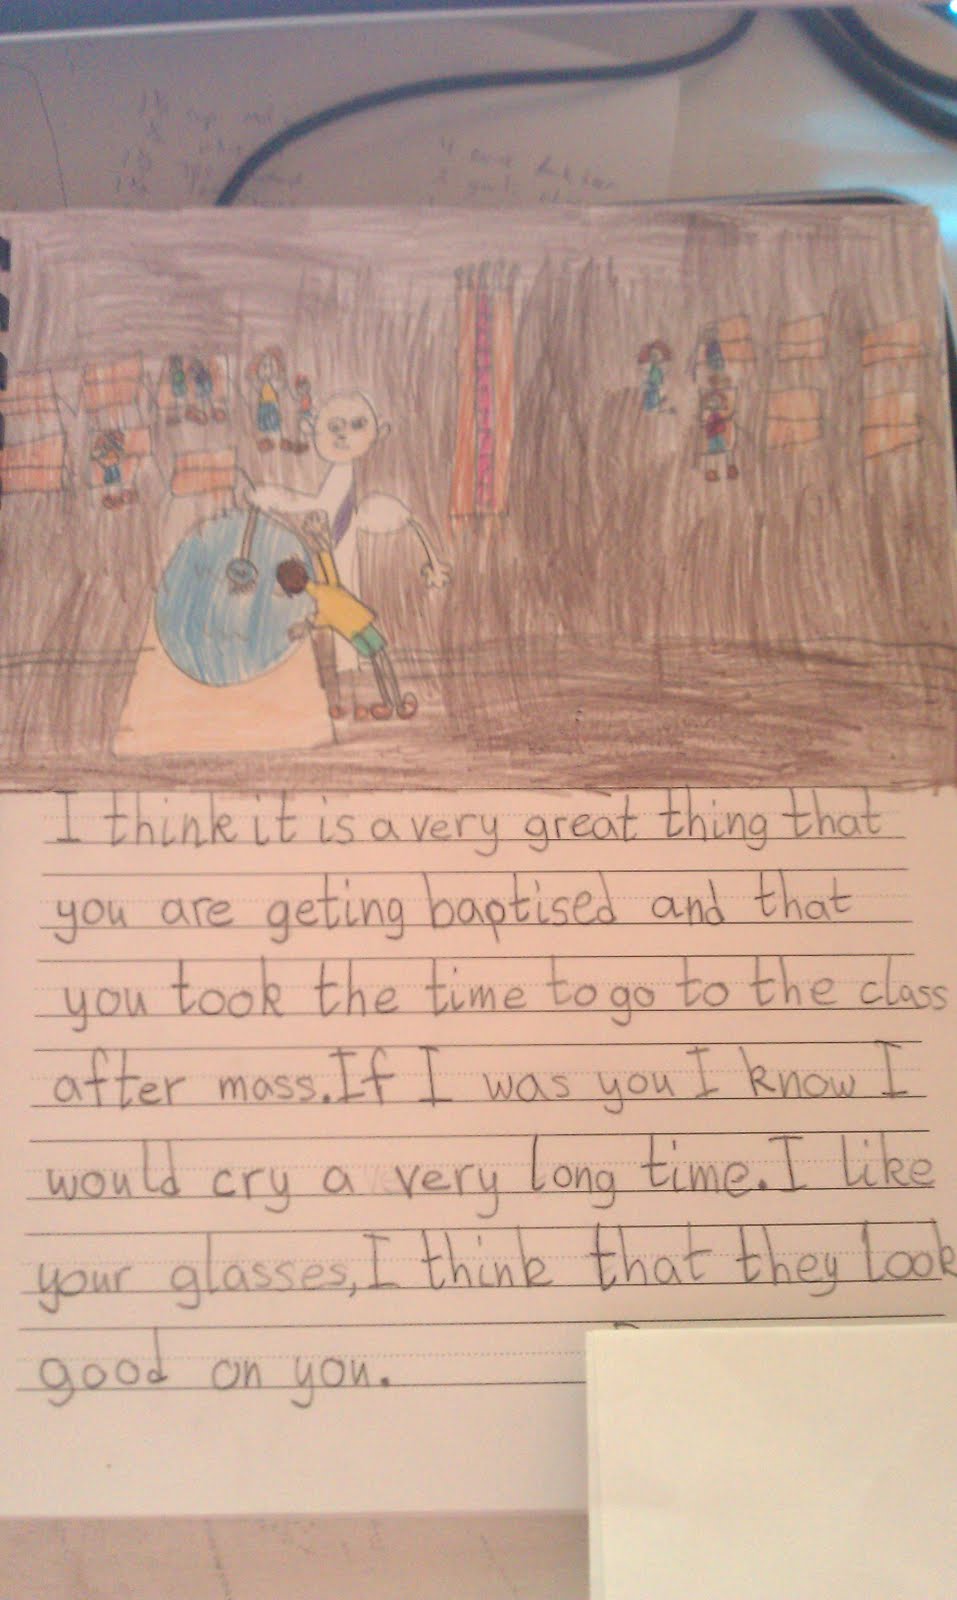 I think it is a very great thing that
you are geting baptised and that
you took the time to go to the class
after mass. If I was you I know I
would cry a very long time. I like
your glasses, I think that they look
good on you.